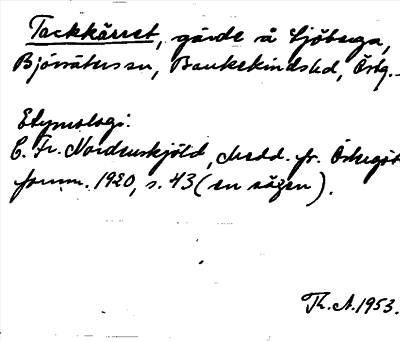 Tackkärret, gärde å Sjöberga,
Björsäters sn, Bankekinds hd, Östg.
Etymologi:
C. Fr. Nordenskjöld, Medd. fr. Östergöt
fornm. 1920, s. 43 (en sägen).
Th. A. 1953.